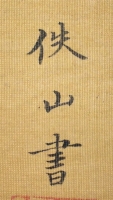 佚山書